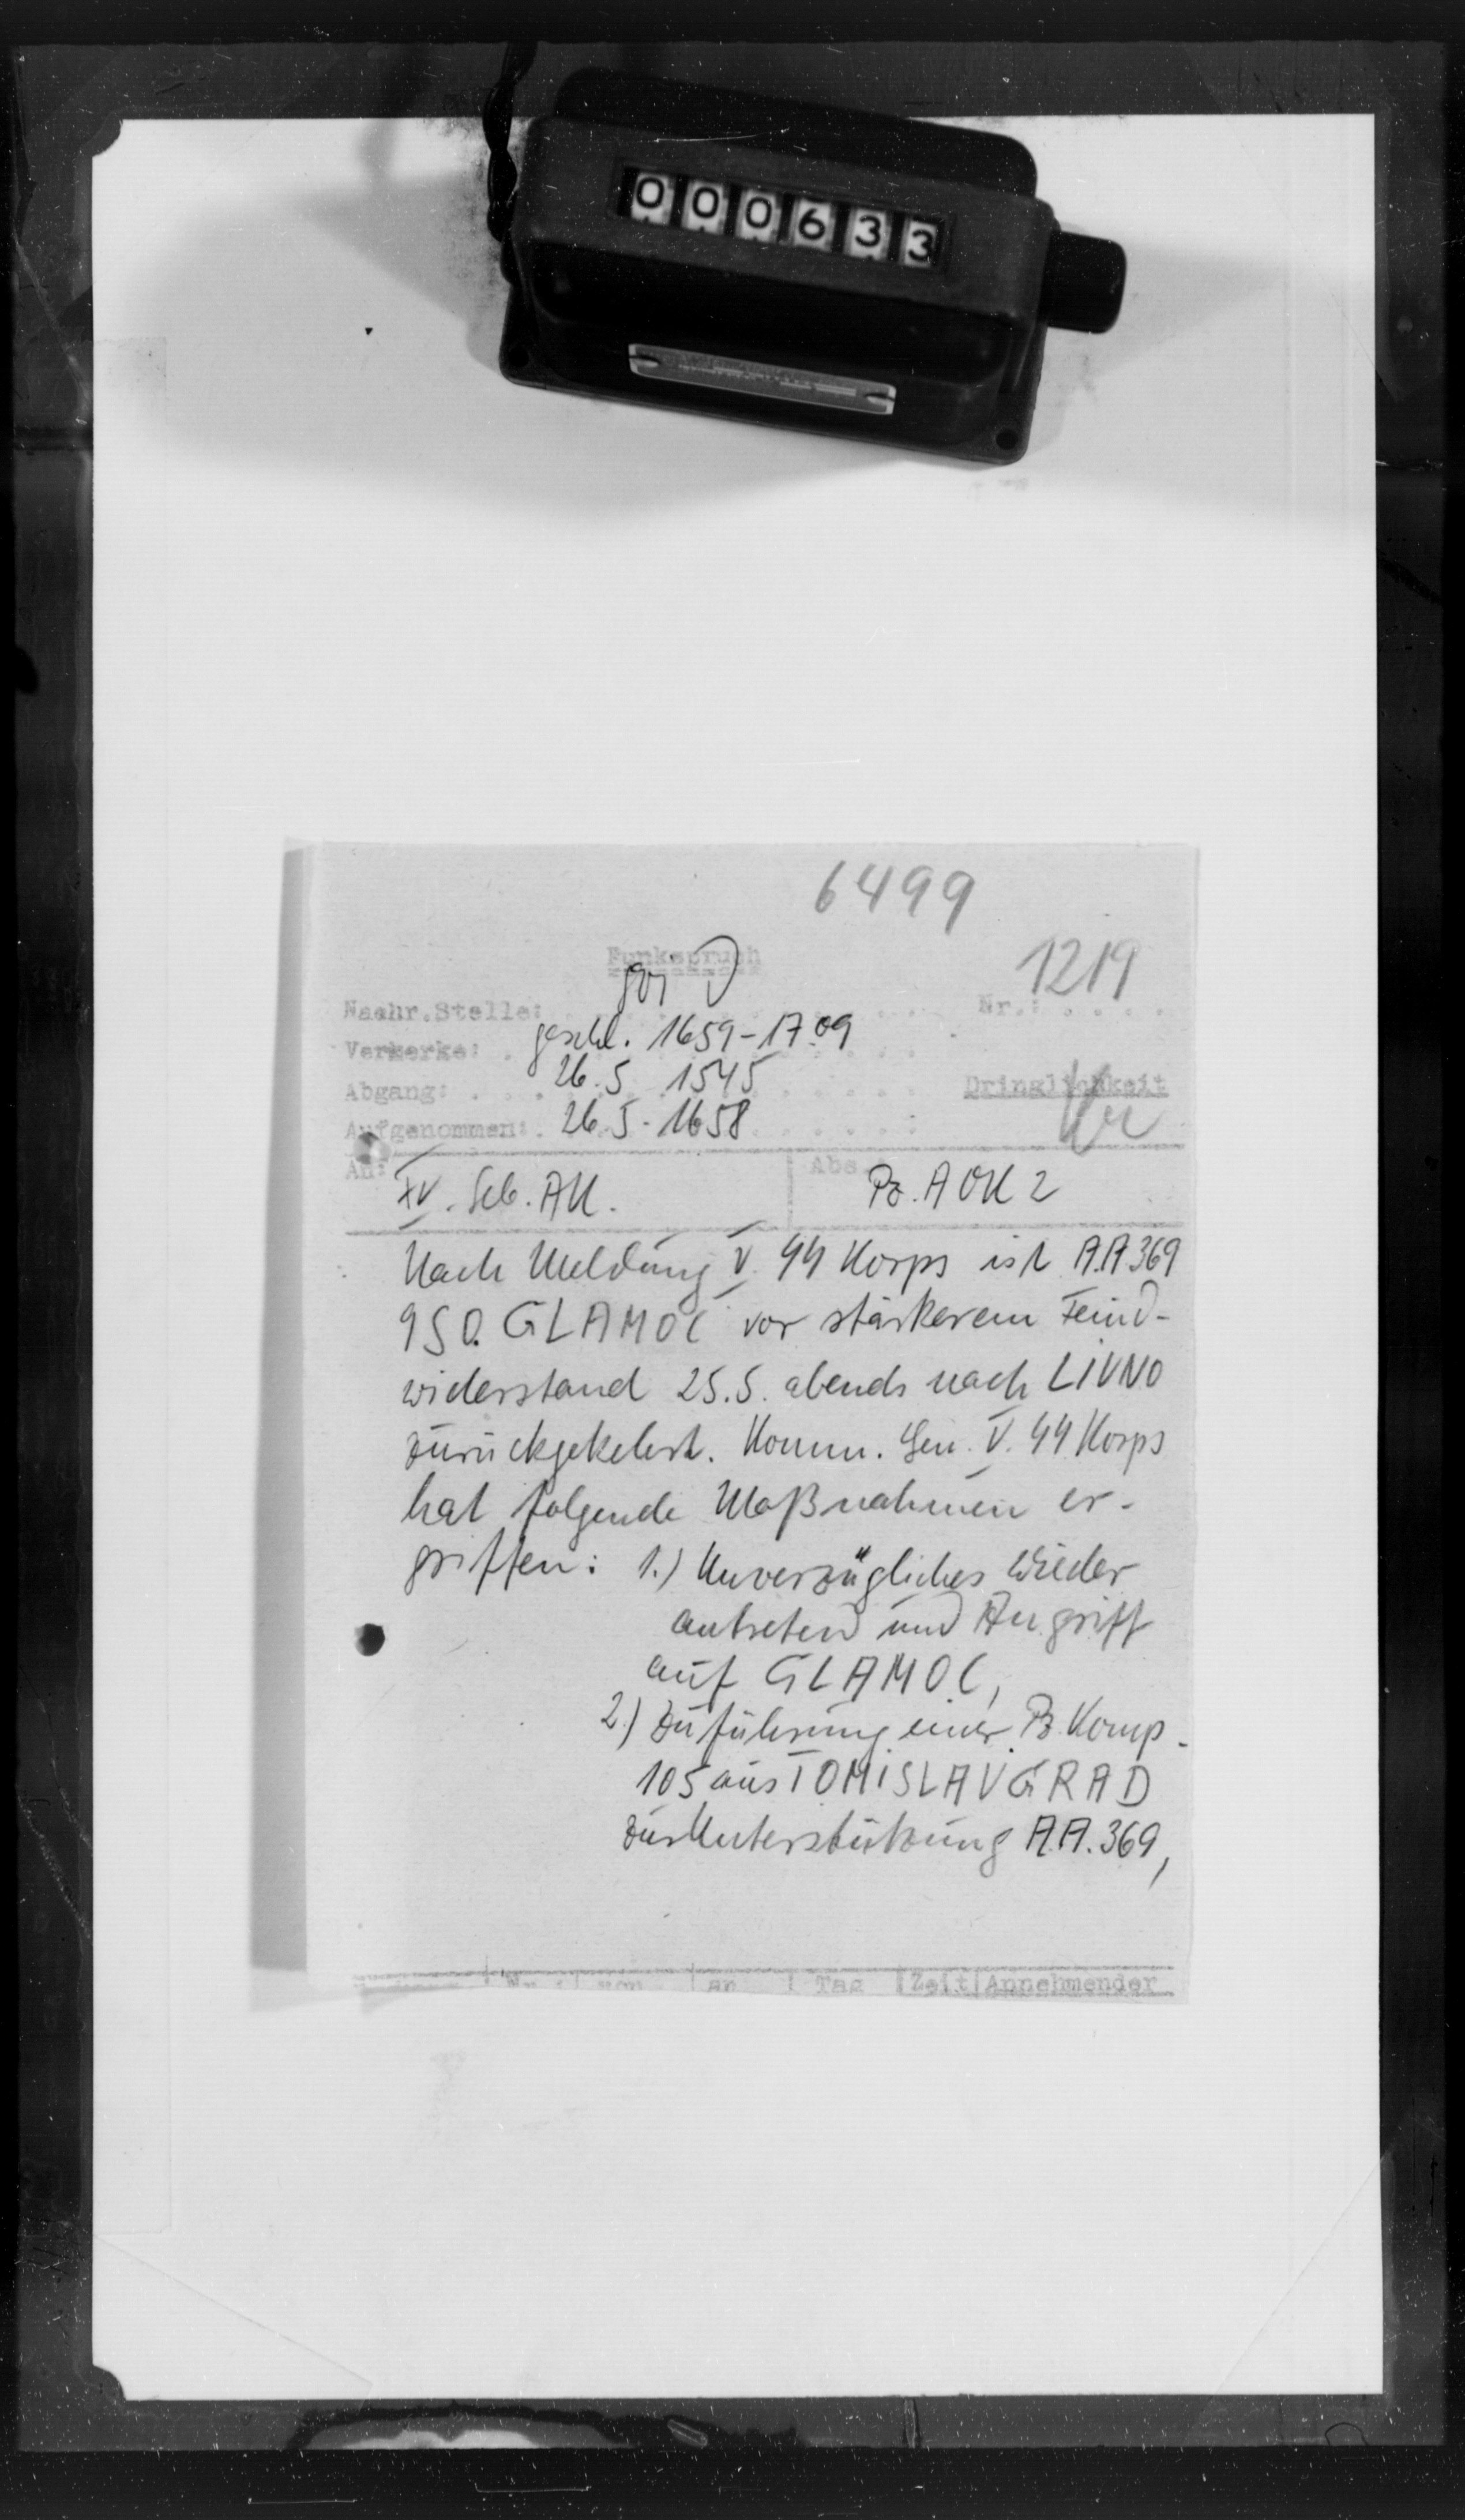 000633
6499
Funkspruch
1219
Nachr.Stelle: Nr.:
Vermerke: geschl. 1659-1709
Abgang: 26.5 1545 Dringlichkeit
Aufgenommen: 26.5. 1658 Kr
An: XV. Geb. AK. Abs. Pz. AOK 2
Nach Meldung V. SS Korps ist A.A 369
9 SO. GLAMOC vor stärkerem Feind-
widerstand 25.5. abends nach LIVNO
zurückgekehrt. Komm. Gen. V. SS Korps
hat folgende Maßnahmen er-
griffen: 1.) Unverzügliches Wieder
antreten und Angriff
auf GLAMOC,
2.) Zuführung einer Pz. Komp.
105 aus TOMISLAVGRAD
zur Unterstützung A.A. 369,
Nr. von an Tag Zeit Annehmender